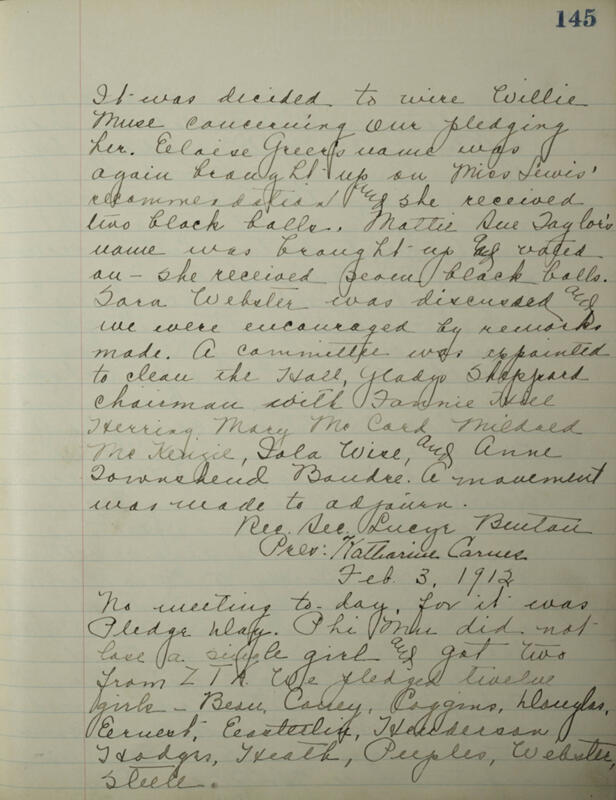 145
It was decided to wire Willie
Muse concerning our pledging
her. Eloise Greer's name was
again brought up on Miss Lewis'
recommendation and she received
two black balls. Mattie Sue Taylor's
name was brought up and voted
on - she received seven black balls.
Sara Webster was discussed and
we were encouraged by remarks
made. A committee was appointed
to clean the Hall, Gladys Sheppard
chairman with Fannie Hill
Herring Mary Mc Cord Mildred
Mc Kenzie, Iola Wise, and Anne
Townshend Boudre. A movement
was made to adjourn.
Rec. Sec. Lucye Benton
Pres: Katharine Carnes
Feb. 3, 1912
No meeting to-day, for it was
Pledge Day. Phi Mu did not
lose a single girl and got two
from Z T A. We pledged twelve
girls - Beau, Coney, Coggins, Douglas,
Ernest, Easterlin, Henderson
Hodges, Heath, Peeples, Webster,
Steele.